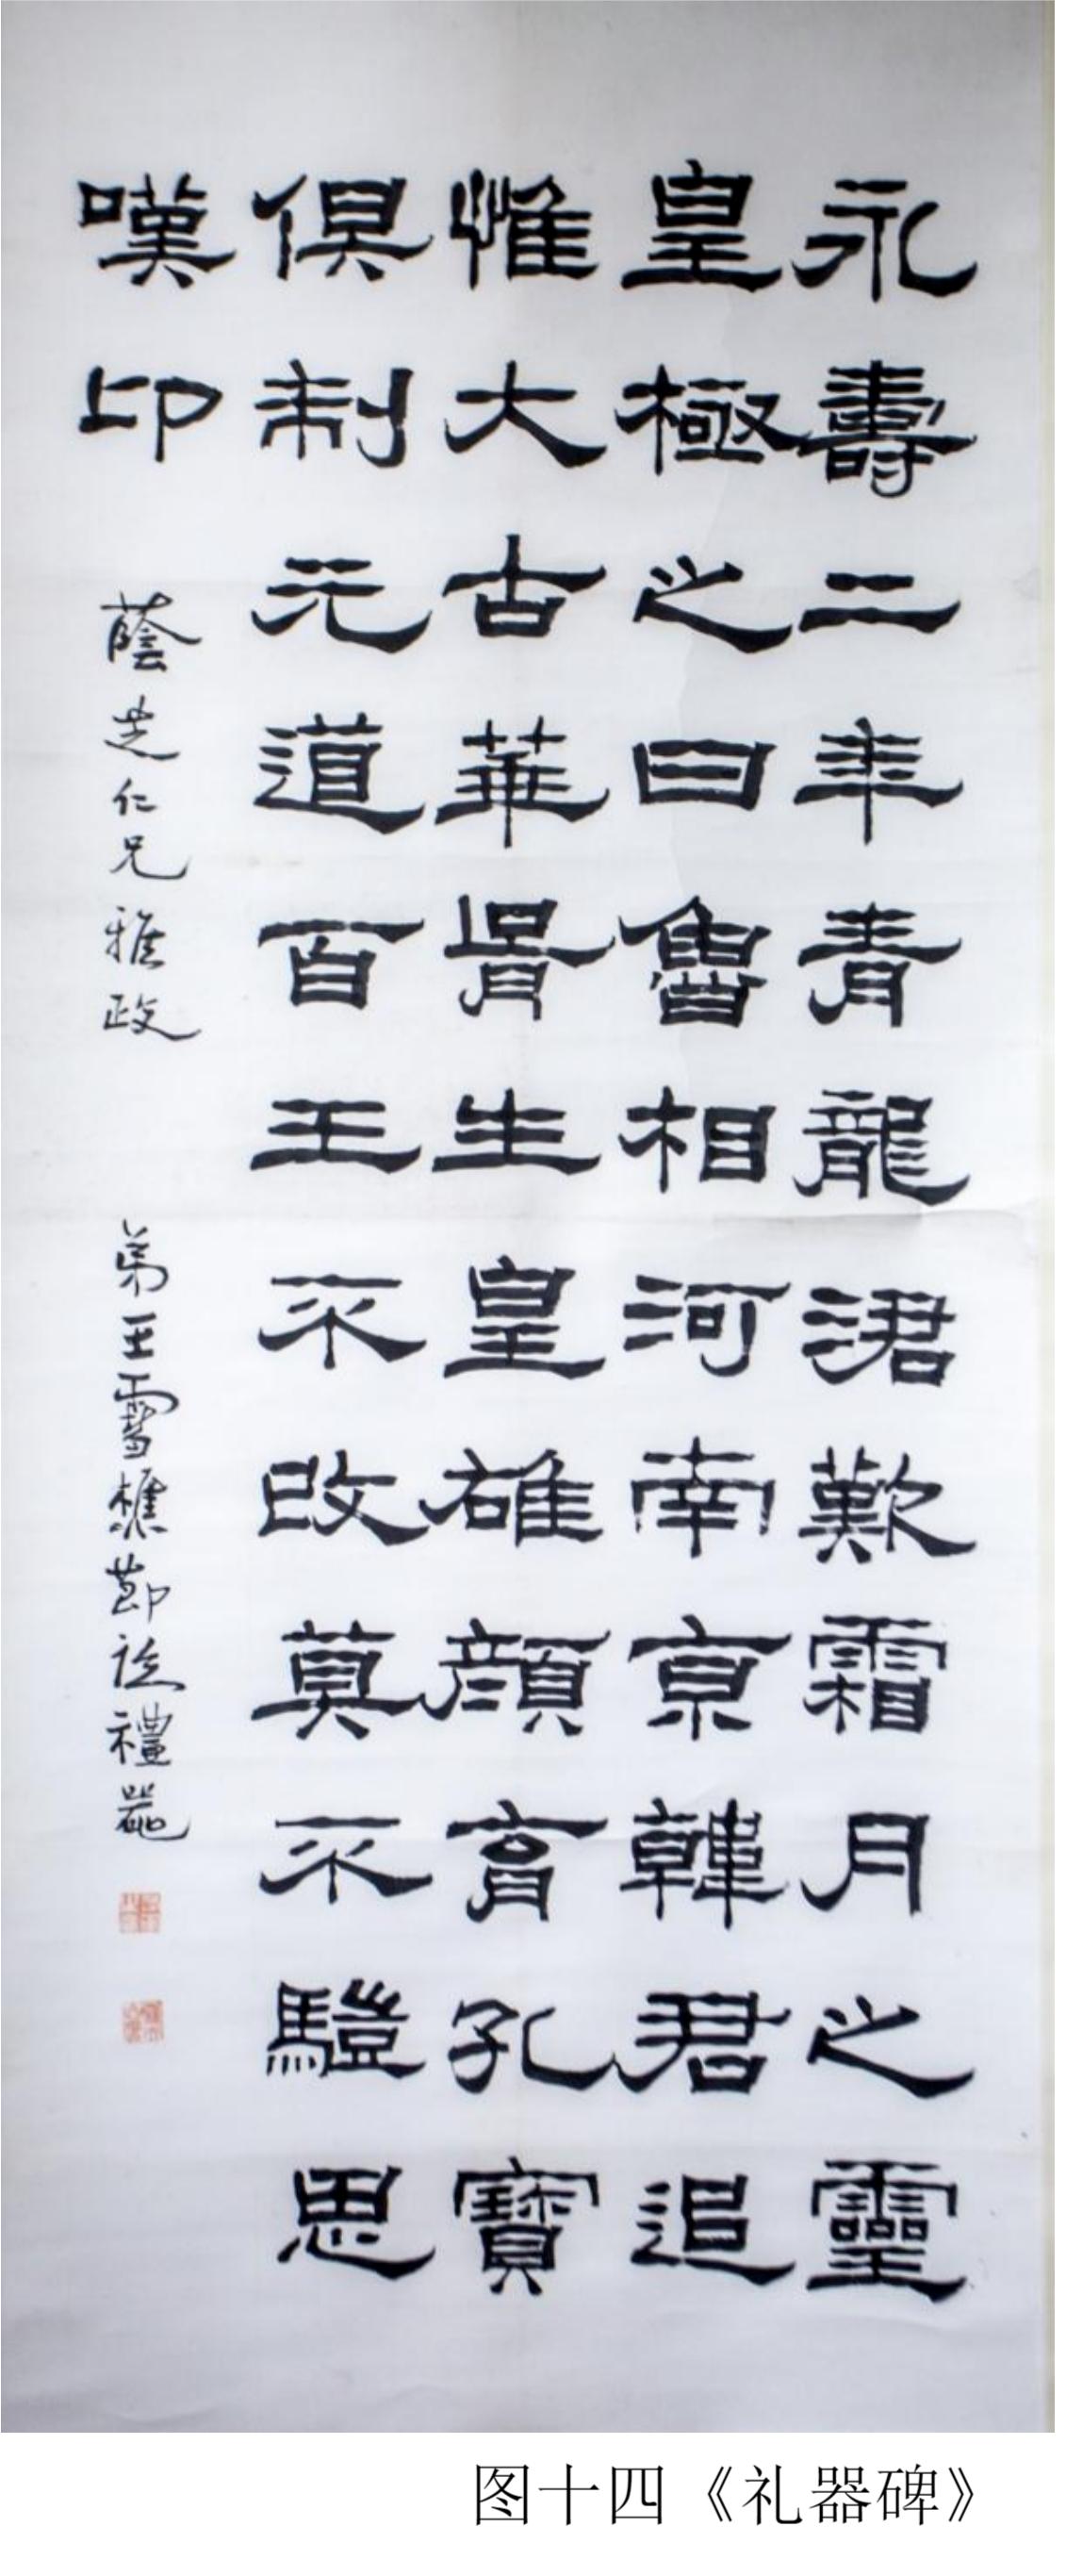 永壽二年青龍涒歎霜月之靈
皇極之日魯相河南京韓君追
惟大古華胥生皇雄顏育孔寶
俱制元道百王不改莫不驥思
嘆卬
蔭芝仁兄雅政
弟王雪樵節臨禮器
图十四《礼器碑》